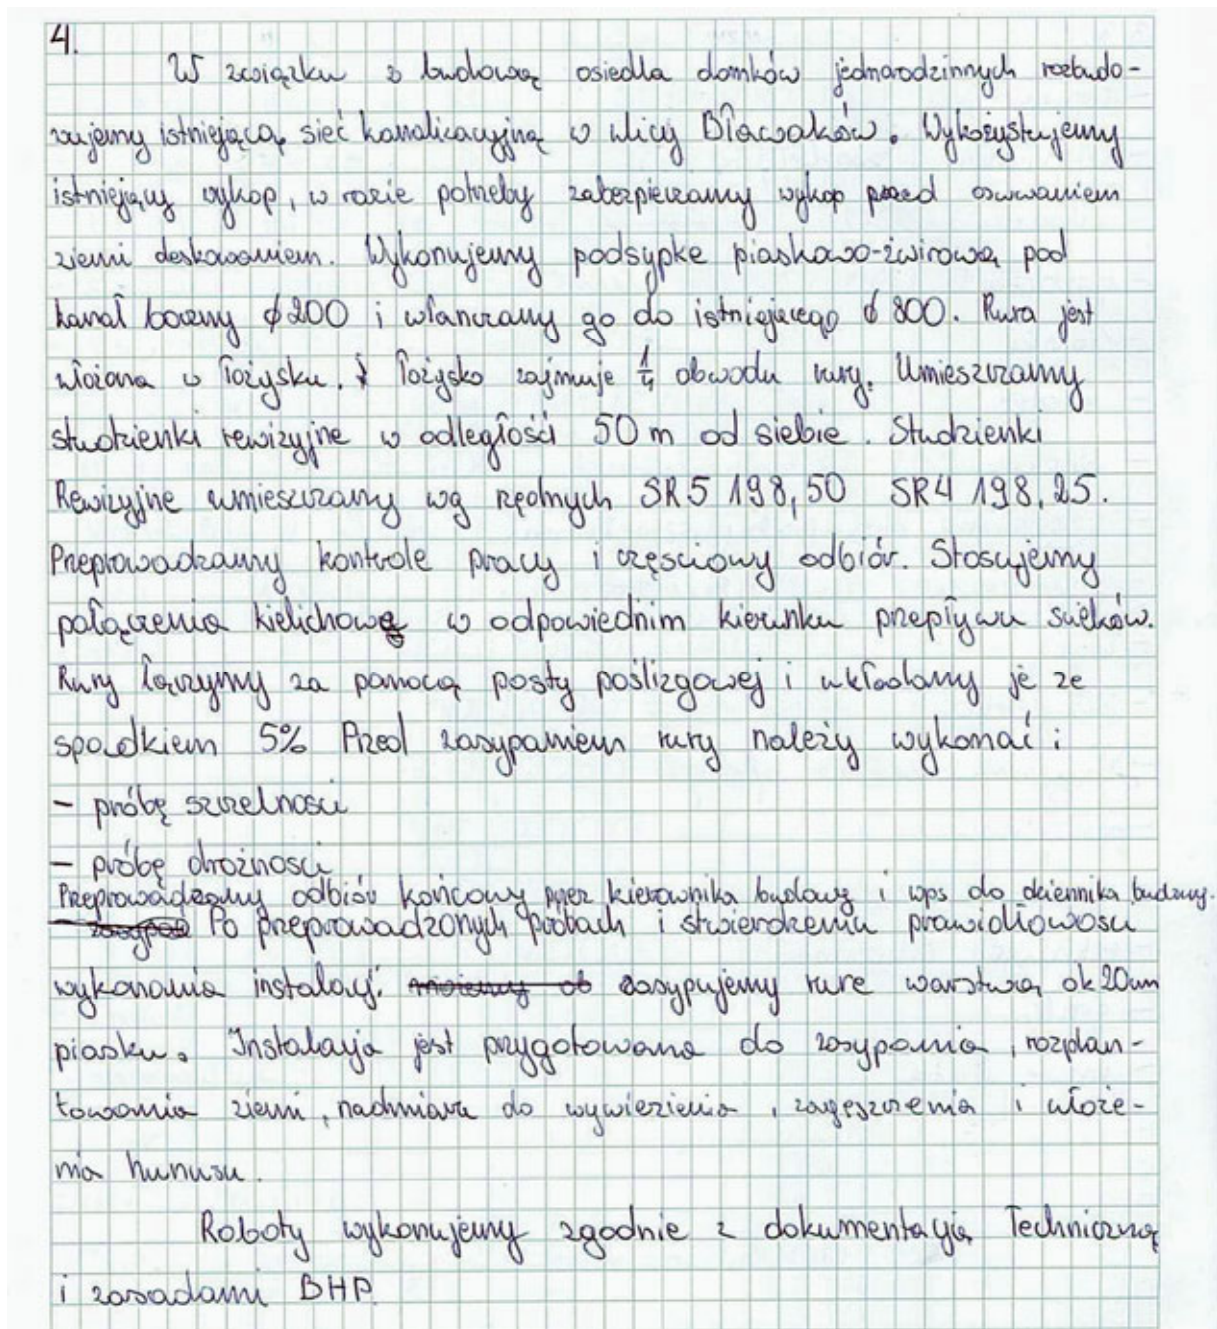 4.
W związku z budową osiedla domków jednorodzinnych rozbudo-
wujemy istniejącą sieć kanalizacyjną w ulicy Bławatków. Wykożystujemy
istniejący wykop, w razie potrzeby zabezpieczamy wykop przed osuwaniem
ziemi deskowaniem. Wykonujemy podsypke piaskowo-żwirową pod
kanał boczny ϕ200 i włanczamy go do istniejącego ϕ 800. Rura jest
włożona w łożysku. Łożysko zajmuje 1/4 obwodu rury. Umieszczamy
studzienki rewizyjne w odległości 50 m od siebie. Studzienki
Rewizyjne umieszczamy wg rzędnych SR5 198,50 SR4 198,25.
Przeprowadzamy kontrole pracy i częsciowy odbiór. Stosujemy
połączenia kielichowe w odpowiednim kierunku przepływu ścieków.
Rury łączymy za pomocą pasty poślizgowej i układamy je ze
spadkiem 5% Przed zasypaniem rury należy wykonać:
- próbę szczelnosci
- próbę drożnosci
Przeprowadzamy odbiór końcowy przez kierownika budowy i wps do dziennika budowy.
Po przeprowadzonych próbach i stwierdzeniu prawidłowosci
wykonania instalacji zasypujemy rure warstwą ok 20cm
piasku. Instalacja jest przygotowana do zasypania, rozplan-
towania ziemi, nadmiaru do wywiezienia, zagęszczenia i włoże-
nia humusu.
Roboty wykonujemy zgodnie z dokumentacją Techniczną
i zasadami BHP.